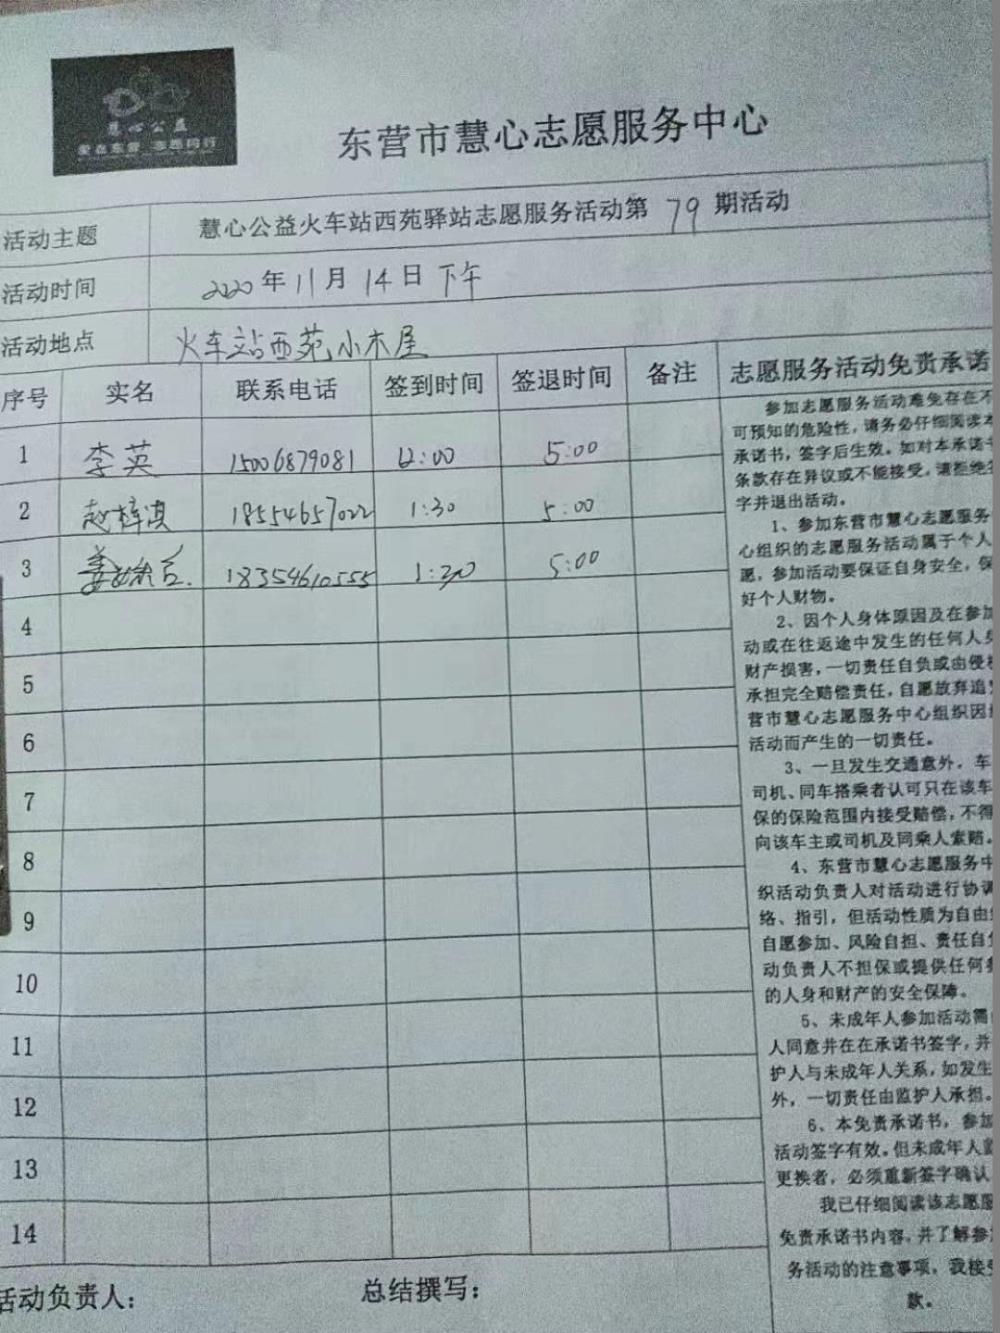 慧心公益
爱在东营 志愿同行
东营市慧心志愿服务中心
活动主题 慧心公益火车站西苑驿站志愿服务活动第 79 期活动
活动时间 2020年11月14日下午
活动地点 火车站西苑小木屋
序号 实名 联系电话 签到时间 签退时间 备注
1 李英 15006879081 12:00 5:00
2 赵梓淇 18554657022 1:30 5:00
3 姜 18354610555 1:30 5:00
4
5
6
7
8
9
10
11
12
13
14
活动负责人: 总结撰写:
志愿服务活动免责承诺
参加志愿服务活动难免存在不
可预知的危险性,请务必仔细阅读本
承诺书,签字后生效。如对本承诺书
条款存在异议或不能接受,请拒绝签
字并退出活动。
1、参加东营市慧心志愿服务
心组织的志愿服务活动属于个人
愿,参加活动要保证自身安全,保
好个人财物。
2、因个人身体原因及在参加
动或在往返途中发生的任何人身
财产损害,一切责任自负或由侵权
承担完全赔偿责任,自愿放弃追究
营市慧心志愿服务中心组织因
活动而产生的一切责任。
3、一旦发生交通意外,车
司机、同车搭乘者认可只在该车
保的保险范围内接受赔偿,不得
向该车主或司机及同乘人索赔。
4、东营市慧心志愿服务中
织活动负责人对活动进行协调
络、指引,但活动性质为自由
自愿参加、风险自担、责任自负
动负责人不担保或提供任何
的人身和财产的安全保障。
5、未成年人参加活动需
人同意并在在承诺书签字,并
护人与未成年人关系,如发生
外,一切责任由监护人承担。
6、本免责承诺书,参加
活动签字有效。但未成年人监
更换者,必须重新签字确认
我已仔细阅读该志愿服
免责承诺书内容,并了解参
务活动的注意事项,我接受
款。